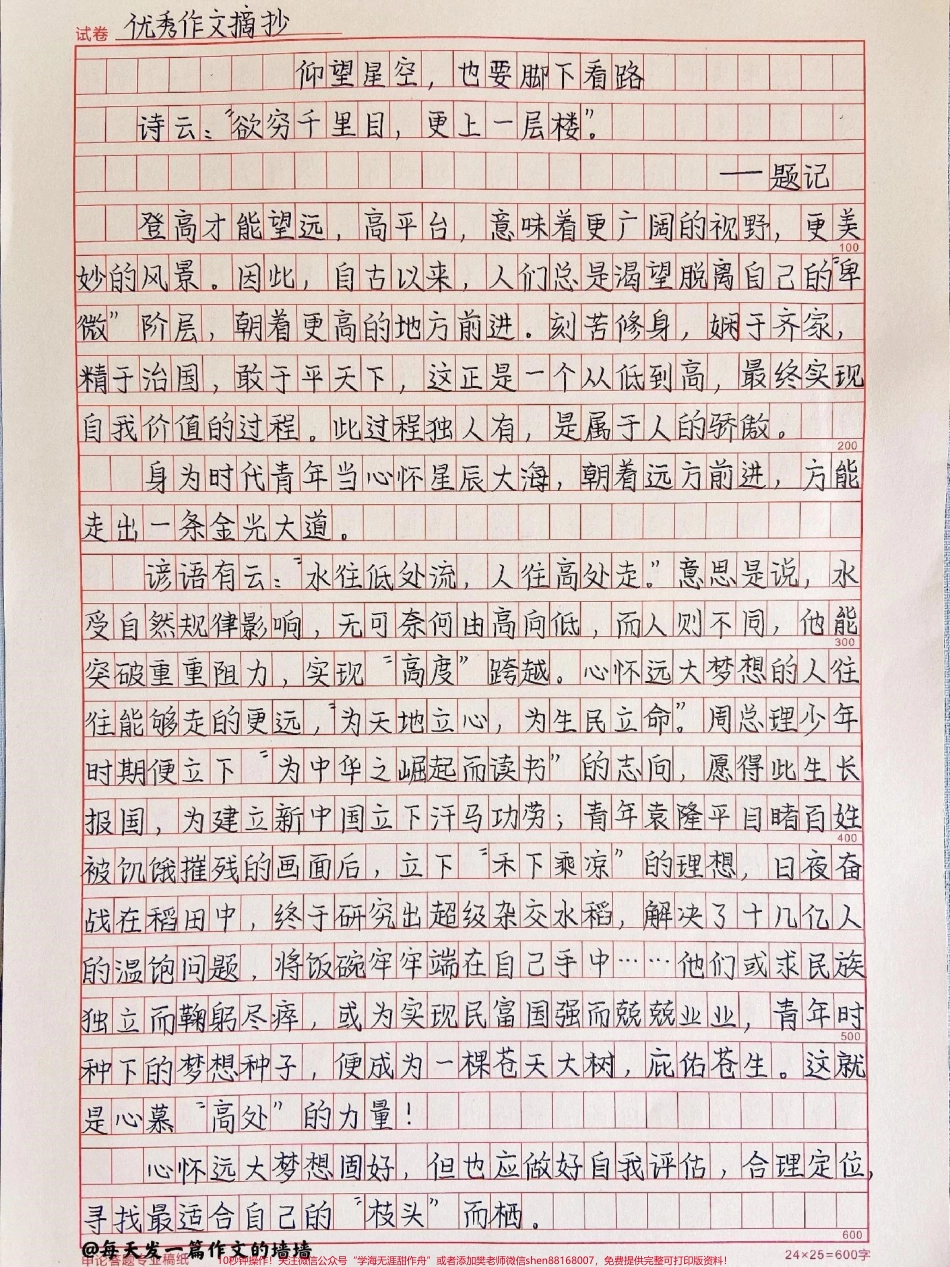 试卷 优秀作文摘抄
仰望星空，也要脚下看路
诗云：“欲穷千里目，更上一层楼”。
——题记
登高才能望远，高平台，意味着更广阔的视野，更美
100
妙的风景。因此，自古以来，人们总是渴望脱离自己的“卑
微”阶层，朝着更高的地方前进。刻苦修身，娴于齐家，
精于治国，敢于平天下，这正是一个从低到高，最终实现
自我价值的过程。此过程独人有，是属于人的骄傲。
200
身为时代青年当心怀星辰大海，朝着远方前进，方能
走出一条金光大道。
谚语有云：“水往低处流，人往高处走。”意思是说，水
受自然规律影响，无可奈何由高向低，而人则不同，他能
300
突破重重阻力，实现“高度”跨越。心怀远大梦想的人往
往能够走的更远，“为天地立心，为生民立命”。周总理少年
时期便立下“为中华之崛起而读书”的志向，愿得此生长
报国，为建立新中国立下汗马功劳；青年袁隆平目睹百姓
400
被饥饿摧残的画面后，立下“禾下乘凉”的理想，日夜奋
战在稻田中，终于研究出超级杂交水稻，解决了十几亿人
的温饱问题，将饭碗牢牢端在自己手中……他们或求民族
独立而鞠躬尽瘁，或为实现民富国强而兢兢业业，青年时
500
种下的梦想种子，便成为一棵苍天大树，庇佑苍生。这就
是心慕“高处”的力量！
心怀远大梦想固好，但也应做好自我评估，合理定位，
寻找最适合自己的“枝头”而栖。
600
@每天发一篇作文的墙墙
申论答题专业稿纸 24×25=600字
10秒钟操作！关注微信公众号“学海无涯甜作舟”或者添加樊老师微信shen88168007，免费提供完整可打印版资料！